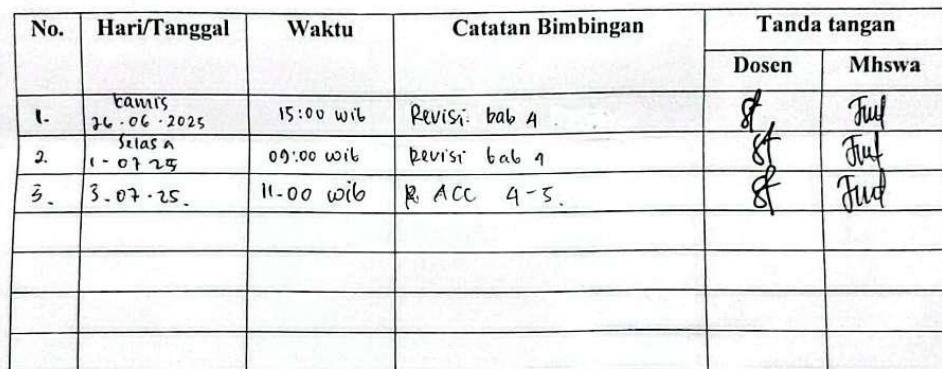 No. Hari/Tanggal Waktu Catatan Bimbingan Tanda tangan
Dosen Mhswa
1. kamis
26.06.2025 15:00 wib Revisi bab 4
2. Selasa
1-07-25 09:00 wib Revisi bab 4
3. 3.07.25. 11-00 wib ACC 4-5.